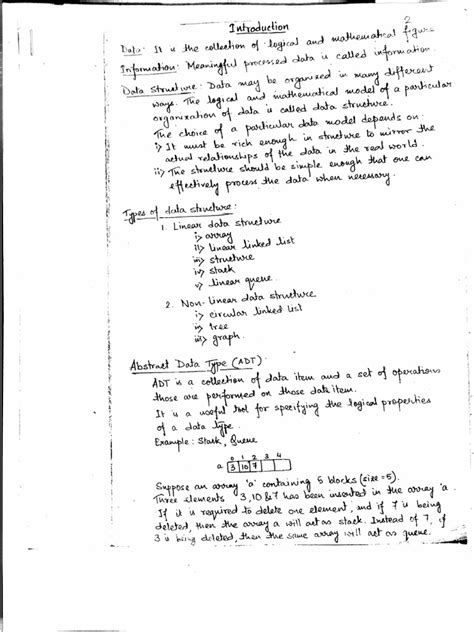 2
Introduction
Data: It is the collection of logical and mathematical figure
Information: Meaningful processed data is called information.
Data Structure: Data may be organized in many different
ways. The logical and mathematical model of a particular
organization of data is called data structure.
The choice of a particular data model depends on:
i> It must be rich enough in structure to mirror the
actual relationships of the data in the real world.
ii> The structure should be simple enough that one can
effectively process the data when necessary.
Types of data structure:
1. Linear data structure
i> array
ii> linear linked list
iii> structure
iv> stack
v> linear queue.
2. Non-linear data structure
i> circular linked list
ii> tree
iii> graph.
Abstract Data Type (ADT):
ADT is a collection of data item and a set of operations
those are performed on those data item.
It is a useful tool for specifying the logical properties
of a data type.
Example: Stack, Queue
0 1 2 3 4
a 3 10 7
Suppose an array 'a' containing 5 blocks (size = 5).
Three elements 3, 10 & 7 has been inserted in the array 'a'.
If it is required to delete one element, and if 7 is being
deleted, then the array a will act as stack. Instead of 7, if
3 is being deleted, then the same array will act as queue.